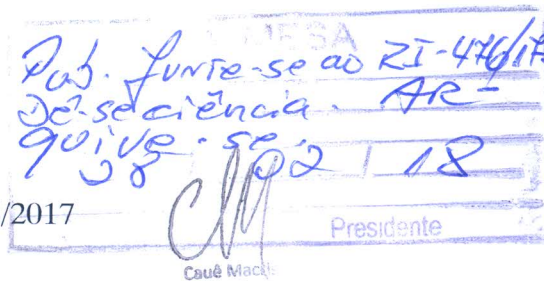 MESA
Pub. Junte-se ao RI-476/17
Dê-se ciência. AR-
quive-se.
28 02 / 18
/2017
Presidente
Cauê Mac